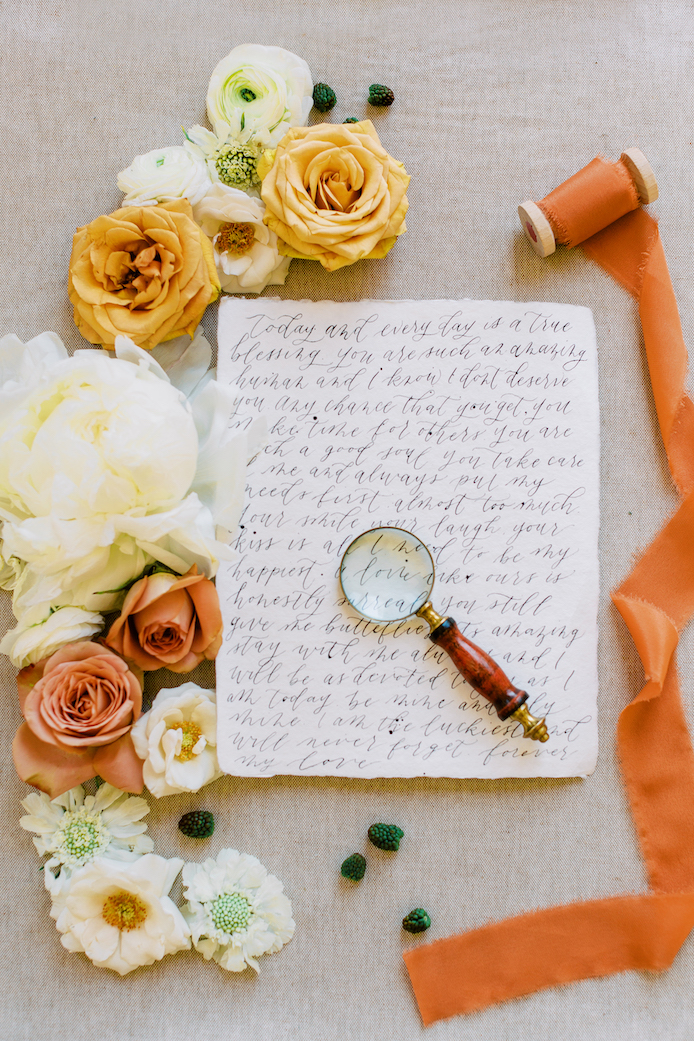 Today and every day is a true
blessing. you are such an amazing
human and I know I dont deserve
you any chance that you get. you
make time for others you are
such a good soul you take care
me and always put my
needs first almost too much.
Your smile your laugh your
kiss is all I need to be my
happiest. a love like ours is
honestly surreal you still
give me butterflies its amazing
stay with me always and I
will be as devoted to as I
am today be mine and only
mine I am the luckiest and
will never forget forever
my love